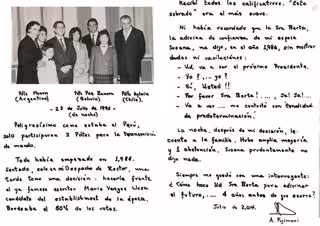 Pdte Menem
(Argentina)
Pdte Paz Zamora
(Bolivia)
Pdte Aylwin
(Chile).
- 28 de Julio de 1990 -
(de noche)
Peligrosísimo como estaba el Perú,
solo participaron 3 Pdtes para la transmisión
de mando.
Todo había empezado en 1,988.
Sentado, solo en mi Despacho de Rector, una
tarde tomé una decisión: hacerle frente
al ya famoso escritor Mario Vargas Llosa
candidato del establishment de la época.
Bordeaba el 50% de los votos.
Recibí todos los calificativos. "Está
sobrado" era el más suave.
Ni había recordado que la Sra Berta,
la adivina de confianza de mi esposa
Susana, me dijo, en el año 1986, sin mostrar
dudas ni vacilaciones:
- Ud. va a ser el próximo Presidente.
- Yo ?... yo ?
- Sí, Usted !!
- Por favor Sra Berta!...., Ja! Ja!...
- Va a ver .... me contestó con tonalidad
de predeterminación.
La noche, después de mi decisión, le
conté a la familia. Hubo amplia mayoría
y 1 abstención, Susana prudentemente no
dijo nada.
Siempre me quedó una interrogante:
¿Cómo hace Ud Sra Berta para adivinar
el futuro,.... 4 años antes de que ocurra?
Julio de 2,014.
A. Fujimori